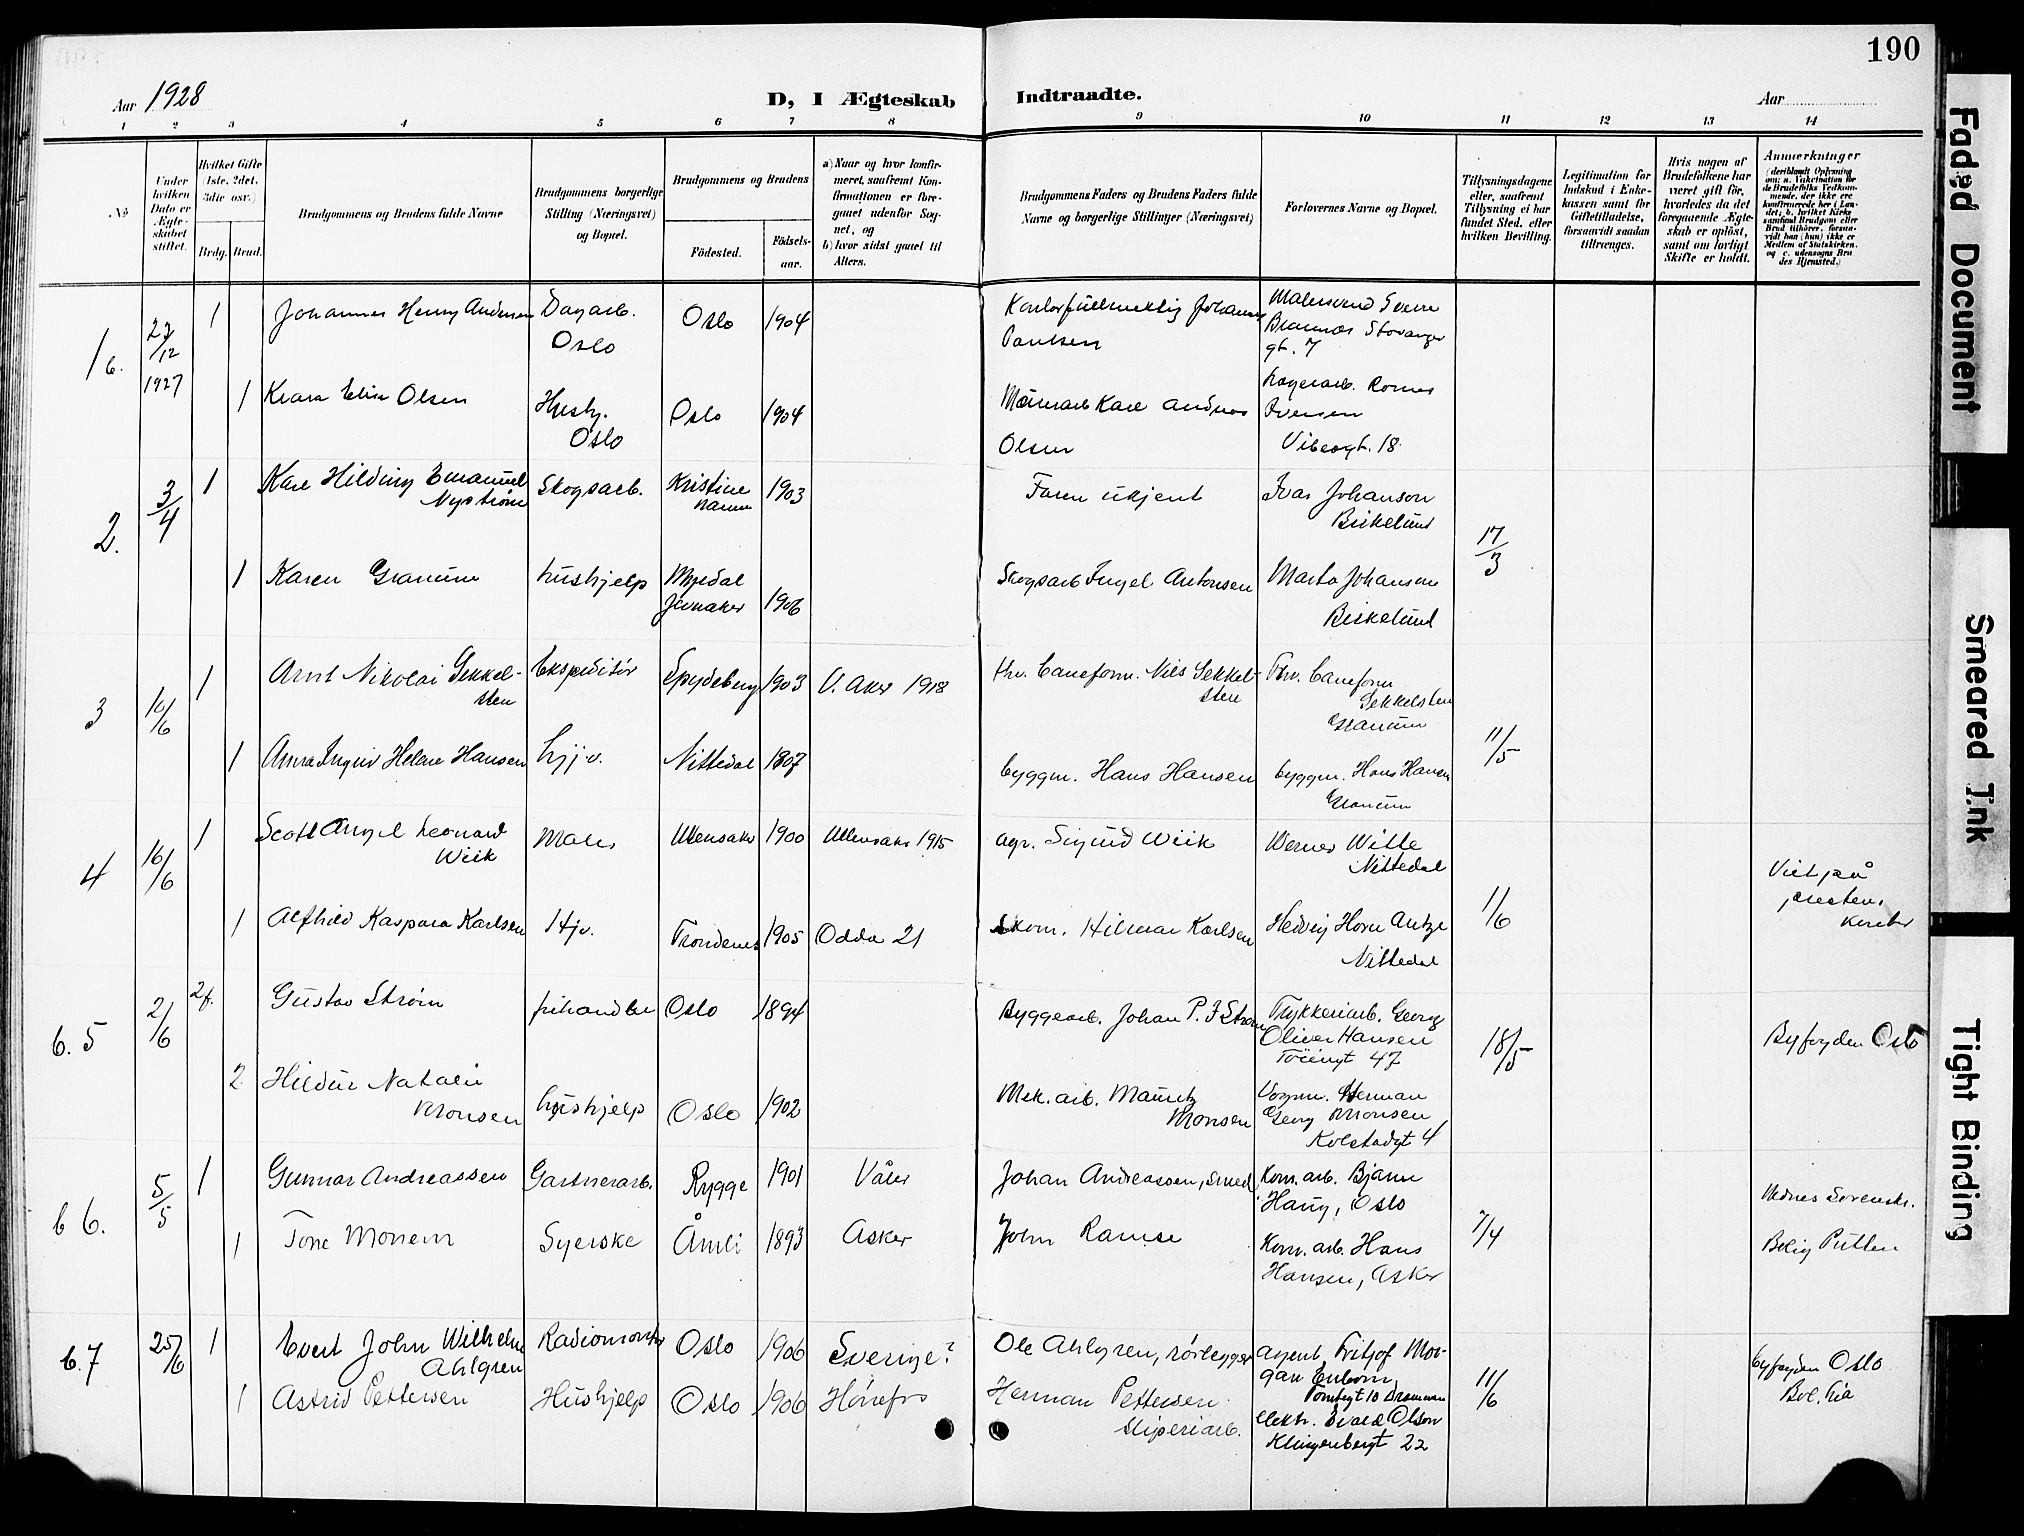 190
Aar 1928
D, I Ægteskab Indtraadte.
Aar
1 2 3 4 5 6 7 8 9 10 11 12 13 14
No
Under hvilken Dato er Ægteskabet stiftet.
Hvilket Gifte (1ste, 2det, 3die osv.)
Brdg. Brud.
Brudgommens og Brudens fulde Navne
Brudgommens borgerlige Stilling (Næringsvei) og Bopæl.
Brudgommens og Brudens
Födested. Födselsaar.
a) Naar og hvor konfirmeret, saafremt Konfirmationen er foregaaet udenfor Sognet, og
b) hvor sidst gaaet til Alters.
Brudgommens Faders og Brudens Faders fulde Navne og borgerlige Stillinger (Næringsvei)
Forlovernes Navne og Bopæl.
Tillysningsdagene eller, saafremt Tillysning ei har fundet Sted, efter hvilken Bevilling.
Legitimation for Indskud i Enkekassen samt for Giftetilladelse, forsaavidt saadan tiltrænges.
Hvis nogen af Brudefolkene har været gift för, hvorledes da det foregaaende Ægteskab er oplöst, samt om lovligt Skifte er holdt.
Anmerkninger
(deriblandt Oplysning om: a. Vakcination for de Brudefolks Vedkommende, der ikke ere konfirmerede her i Landet; b. hvilket Kirkesamfund Brudgom eller Brud tilhører, forsaavidt han (hun) ikke er Medlem af Statskirken, og c. udensogns Brudes Hjemsted.)
1 b. 27/12 1927 1 Johannes Henry Andersen Dagarb. Oslo Oslo 1904 Kontorfullmektig Johannes Paulsen Malersvend Sverre Stavanger gt. 7
1 Klara Elise Olsen Hush. Oslo Oslo 1904 Karl Andreas Olsen Lagerarb. Iversen Vibesgt. 18
2. 3/4 1 Karl Hilding Emanuel Nystrøm Skogsarb. Kristinehamn 1903 Faren ukjent Ivar Johanson Birkelund
17/3
1 Karen Granum Hushjelp Jevnaker 1906 Skogsarb Engel Antonsen Marta Johanson Birkelund
3 10/6 1 Arnt Nikolai Sekkelsten Ekspeditör Spydeberg 1903 V. Aker 1918 Nils Sekkelsten Sekkelsten Granum
11/5
1 Anna Ingrid Helene Hansen Hjv. Nittedal 1807 byggm. Hans Hansen byggm. Hans Hansen Granum
4 16/6 1 Scott Angel Leonard Wiik Maler Ullensaker 1900 Ullensaker 1915 agr. Sigurd Wiik Werner Witte Nittedal
1/6 Viet på prestens kontor
1 Alfhild Kaspara Karlsen Hjv. Trondenes 1905 Odda 21 Skom. Hilmar Karlsen Hedvig Horn Antze Nittedal
b. 5 2/6 2f. Gustav Strøm frihandler Oslo 1894 Byggearb. Johan P. F Strøm Trykkeriarb. Georg Oliver Hansen Töiengt 47
18/5 Byfogden Oslo
2 Hildur Natalie Monsen Hushjelp Oslo 1902 Mek. arb. Mauritz Monsen Vognm. Herman Georg Monsen Kolstadgt 4
b 6. 5/5 1 Gunnar Andreassen Gartnerarb. Rygge 1901 Våler Johan Andreassen, smed Kom. arb. Bjarne Haug, Oslo
7/4 Nednes Sorensk.
1 Tone Monsen Syerske Åmli 1893 Asker John Ramse Kom. arb. Hans Hansen, Asker Bolig Putten
b. 7 25/6 1 Evert John Wilhelm Ahlgren Radiomontør Oslo 1906 Sverige? Ole Ahlgren, rörlegger agent Fritjof Morgan Enbom, Tomtegt 10 Drammen
11/6 byfogden Oslo
1 Astrid Pettersen Hushjelp Oslo 1906 Hönefos Herman Pettersen sliperiarb. elektr. Evald Olson Klingenbergt 22 Bol. Lia
Faded Document
Smeared Ink
Tight Binding